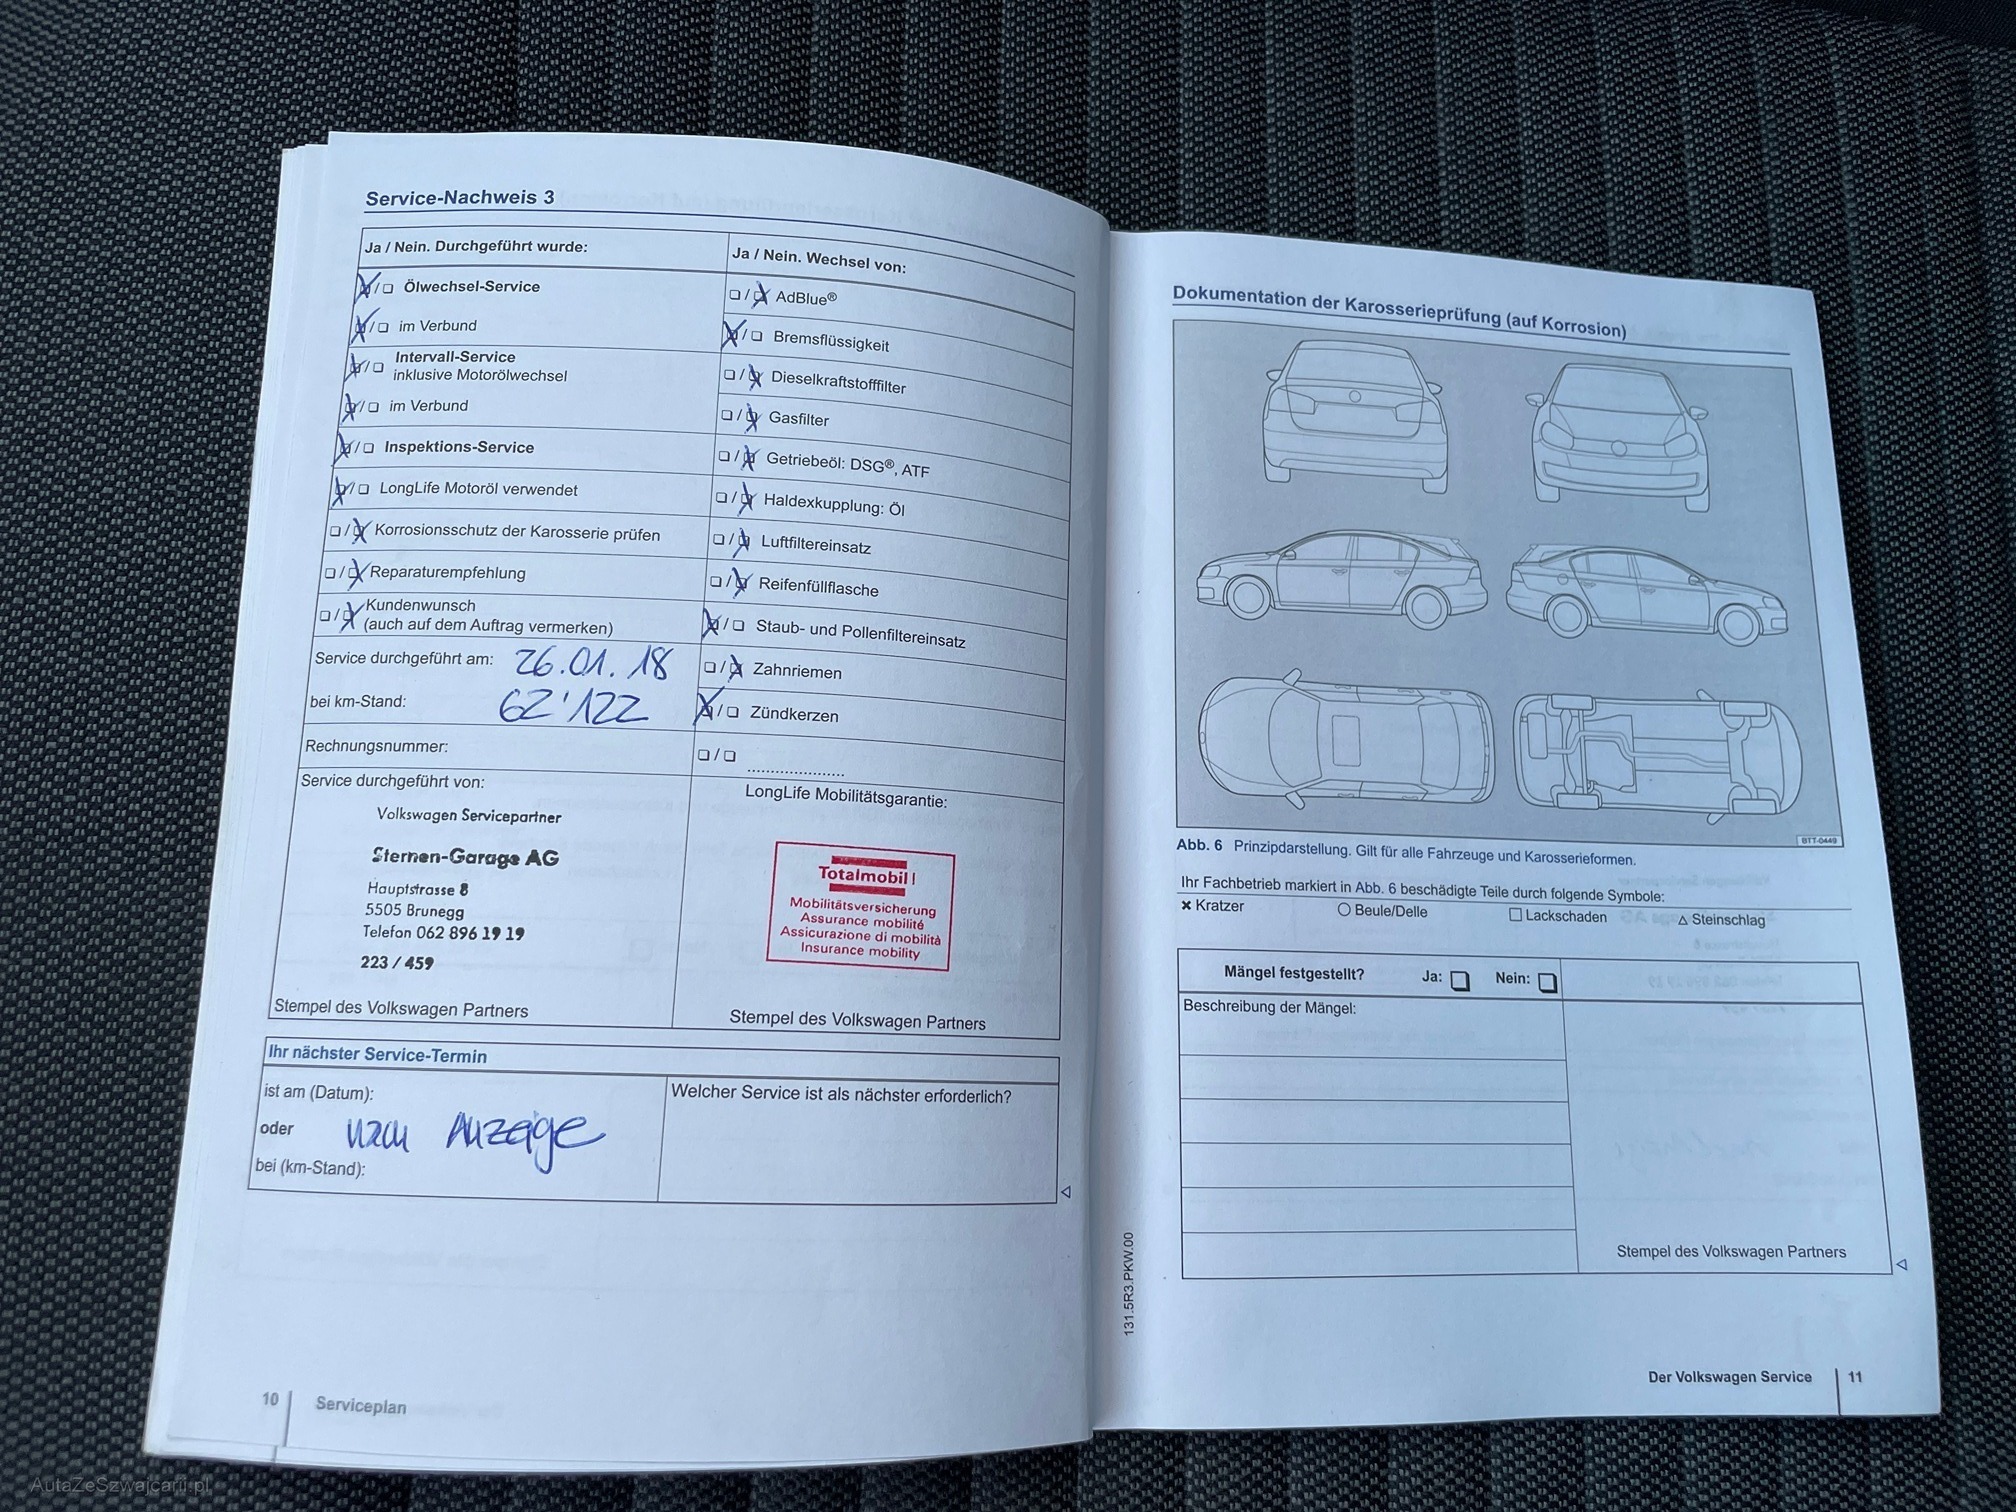 Service-Nachweis 3
Ja / Nein. Durchgeführt wurde:
❏ / ❏ Ölwechsel-Service
❏ / ❏ im Verbund
❏ / ❏ Intervall-Service
inklusive Motorölwechsel
❏ / ❏ im Verbund
❏ / ❏ Inspektions-Service
❏ / ❏ LongLife Motoröl verwendet
❏ / ❏ Korrosionsschutz der Karosserie prüfen
❏ / ❏ Reparaturempfehlung
❏ / ❏ Kundenwunsch
(auch auf dem Auftrag vermerken)
Service durchgeführt am: 26.01.18
bei km-Stand: 62'122
Rechnungsnummer:
Service durchgeführt von:
Volkswagen Servicepartner
Sternen-Garage AG
Hauptstrasse 8
5505 Brunegg
Telefon 062 896 19 19
223 / 459
Stempel des Volkswagen Partners
Ja / Nein. Wechsel von:
❏ / ❏ AdBlue®
❏ / ❏ Bremsflüssigkeit
❏ / ❏ Dieselkraftstofffilter
❏ / ❏ Gasfilter
❏ / ❏ Getriebeöl: DSG®, ATF
❏ / ❏ Haldexkupplung: Öl
❏ / ❏ Luftfiltereinsatz
❏ / ❏ Reifenfüllflasche
❏ / ❏ Staub- und Pollenfiltereinsatz
❏ / ❏ Zahnriemen
❏ / ❏ Zündkerzen
❏ / ❏ ......................
LongLife Mobilitätsgarantie:
Totalmobil!
Mobilitätsversicherung
Assurance mobilité
Assicurazione di mobilità
Insurance mobility
Stempel des Volkswagen Partners
Ihr nächster Service-Termin
ist am (Datum):
oder nach Anzeige
bei (km-Stand):
Welcher Service ist als nächster erforderlich?
10 Serviceplan
131.5R3.PKW.00
Dokumentation der Karosserieprüfung (auf Korrosion)
BTT-0449
Abb. 6 Prinzipdarstellung. Gilt für alle Fahrzeuge und Karosserieformen.
Ihr Fachbetrieb markiert in Abb. 6 beschädigte Teile durch folgende Symbole:
× Kratzer ○ Beule/Delle □ Lackschaden △ Steinschlag
Mängel festgestellt? Ja: ❏ Nein: ❏
Beschreibung der Mängel:
Stempel des Volkswagen Partners
Der Volkswagen Service 11
AutaZeSzwajcarii.pl